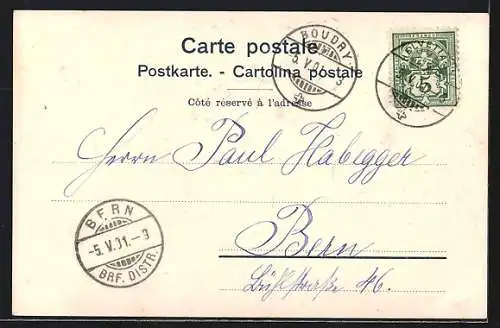 Carte postale.
Postkarte. - Cartolina postale
Côté réservé à l'adresse
BOUDRY
5.V.01.-3
HELVETIA
5
Herrn Paul Habegger
Bern
BERN
-5.V.01.-3
BRF. DISTR.
46.